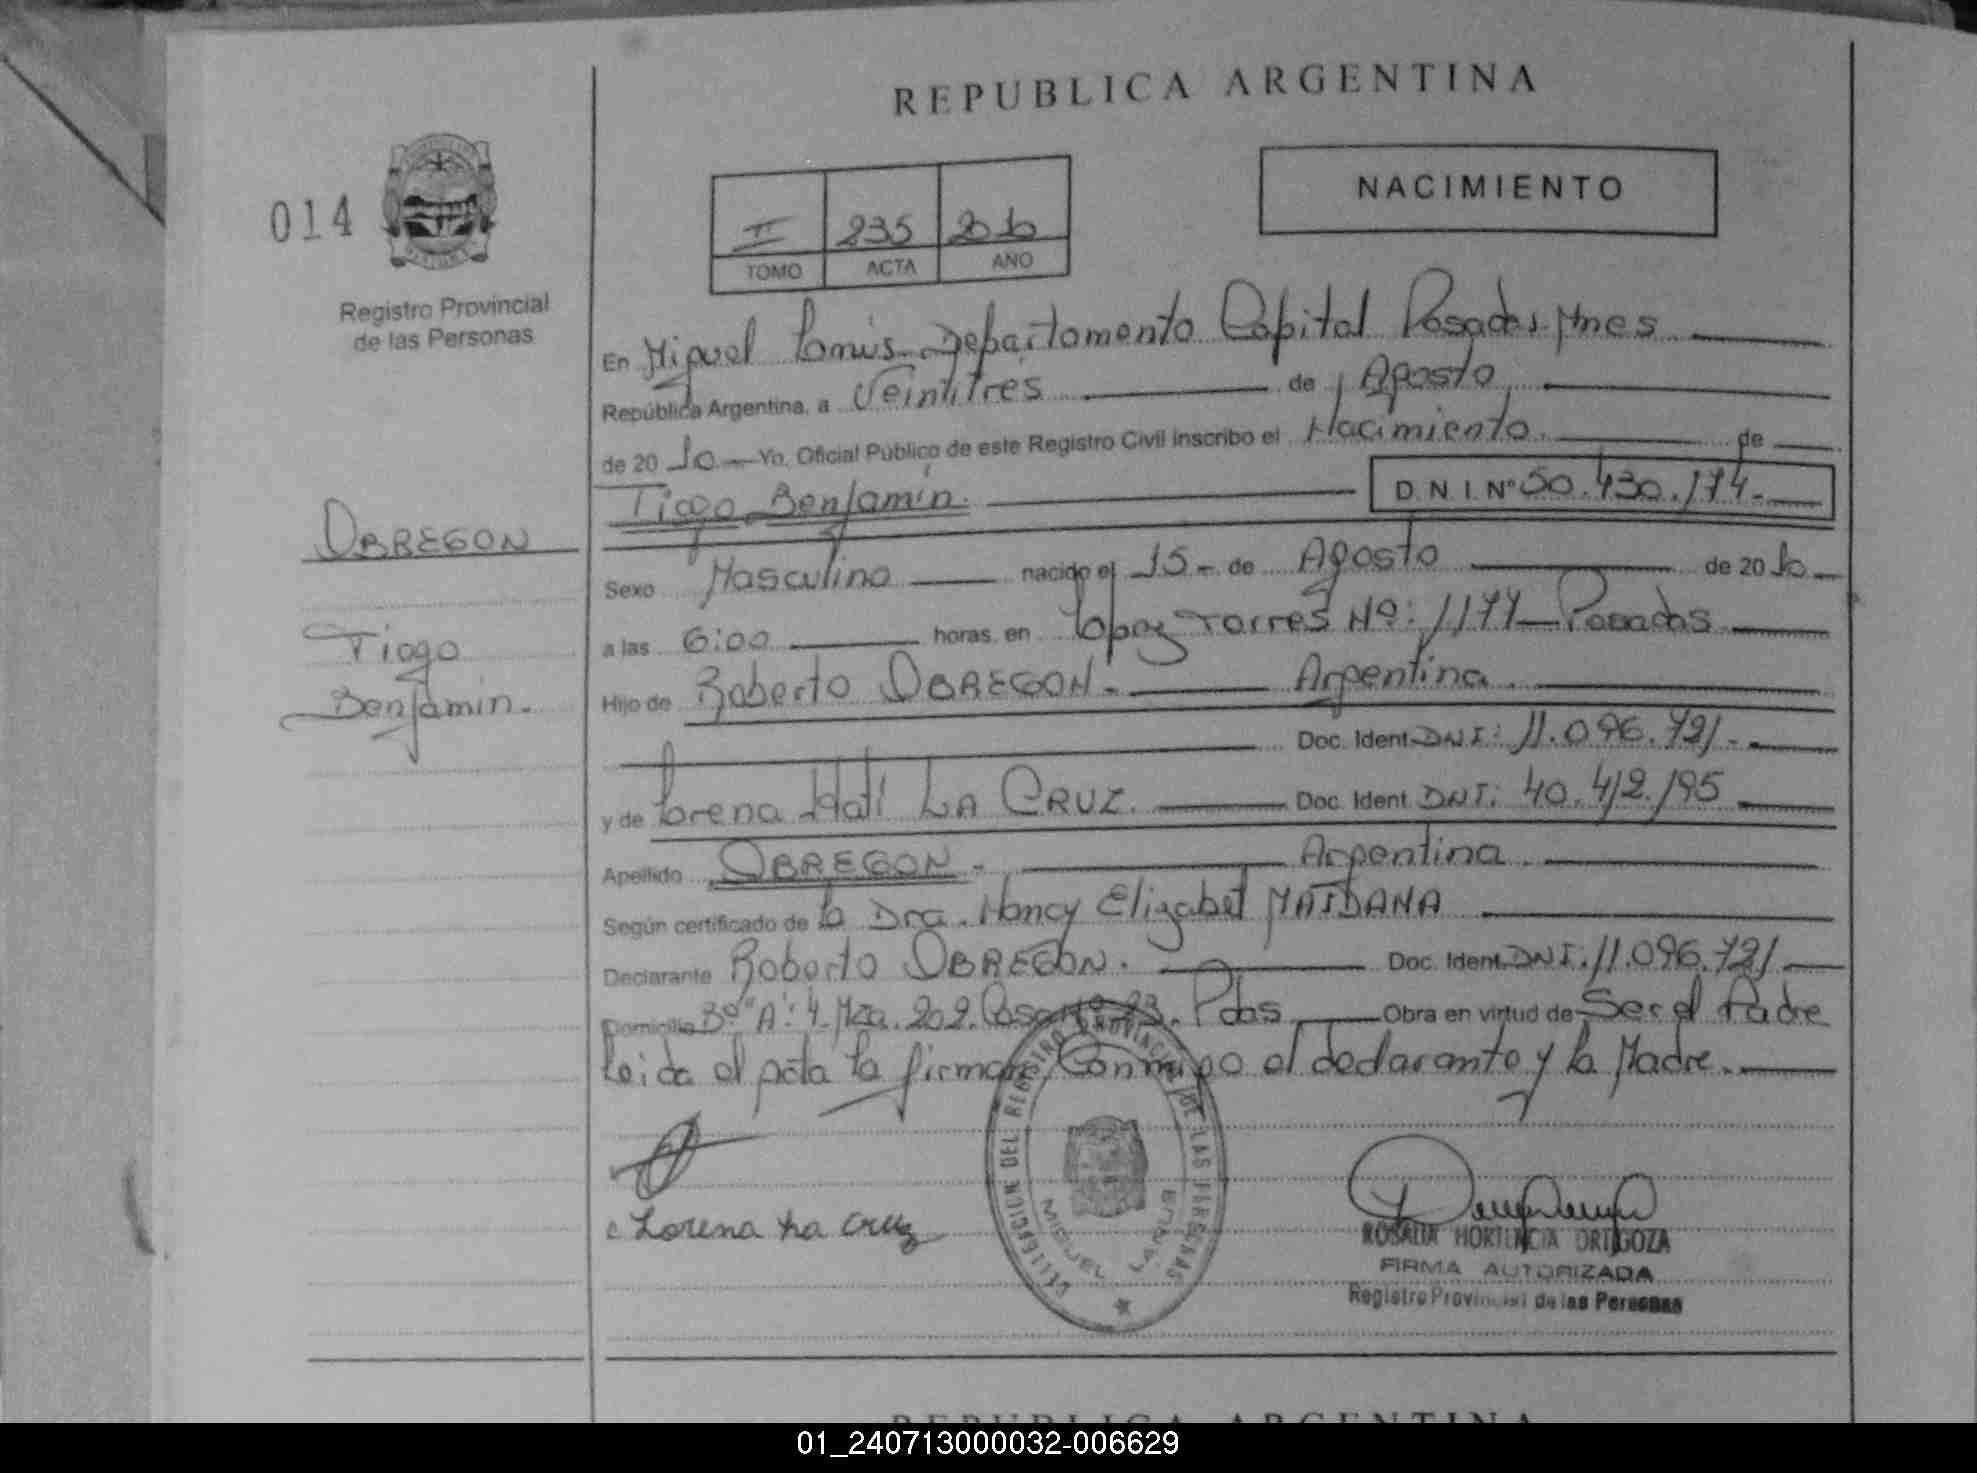 REPUBLICA ARGENTINA
014
Registro Provincial
de las Personas
NACIMIENTO
II 235 2010
TOMO ACTA AÑO
En Miguel Lanús Departamento Capital Posadas Mnes
República Argentina, a Veintitrés de Agosto
de 20 10 Yo, Oficial Público de este Registro Civil inscribo el Nacimiento de
Tiago Benjamín.
D.N.I. Nº 50.430.174.
OBREGON
Tiago
Benjamín.
Sexo Masculino nacido el 15 de Agosto de 20 10
a las 6:00 horas, en López Torres Nº: 1177 Posadas
Hijo de Roberto OBREGON. Argentina.
Doc. Ident. DNI: 11.096.721.
y de Lorena Itatí LA CRUZ. Doc. Ident. DNI: 40.412.195
Apellido OBREGON. Argentina.
Según certificado de la Dra. Nancy Elizabet MAIDANA
Declarante Roberto OBREGON. Doc. Ident. DNI: 11.096.721
Domicilio Bº "A" 4. Mza. 202. Casa Nº 23. Pdas Obra en virtud de Ser el Padre
Leida el acta la firman Conmigo el declarante y la Madre.
Lorena La Cruz
DEL REGISTRO PROVINCIAL DE LAS PERSONAS
MIGUEL LANUS
ROSALIA HORTENCIA ORTIGOZA
FIRMA AUTORIZADA
Registro Provincial de las Personas
REPUBLICA ARGENTINA
01_240713000032-006629